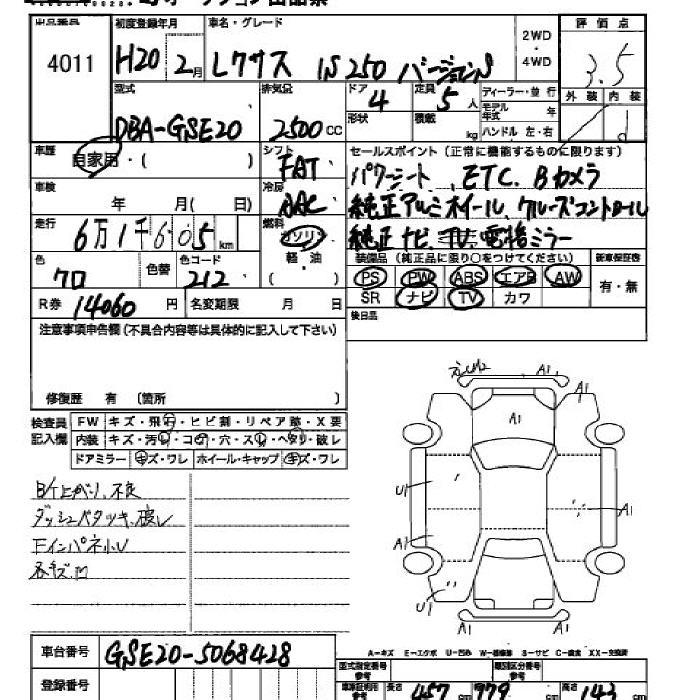 出品番号 初度登録年月 車名・グレード 2WD・4WD 評価点
4011 H20 2月 レクサス IS250 バージョンS 3.5
型式 排気量 ドア 定員 ディーラー・並行 外装 内装
DBA-GSE20 2500cc 4 5人 モデル年式 年 d
形状 積載 kg ハンドル 左・右
車歴 自家用・( ) シフト FAT セールスポイント(正常に機能するものに限ります)
パワーシート、ETC、Bカメラ
車検 年 月( 日) 冷房 AAC 純正アルミホイール、クルーズコントロール
走行 6万1千605km 燃料 ガソリン 純正ナビ、TV、電格ミラー
軽・油 装備品(純正品に限り○をつけてください) 新車保証書
色 クロ 色替 色コード 212 ( ) PS PW ABS エアB AW 有・無
R券 14060円 名変期限 月 日 SR ナビ TV カワ
後日品
注意事項申告欄(不具合内容等は具体的に記入して下さい)
修復歴 有 〔箇所 〕
検査員記入欄 FW キズ・飛石・ヒビ割・リペア跡・X要
内装 キズ・汚レ・コゲ・穴・スレ・ヘタリ・破レ
ドアミラー キズ・ワレ ホイール・キャップ キズ・ワレ
B/T上がり、不良
ダッシュベタツキ、破レ
Fインパネ小U
各キズ凹
A1 A1
A1
U1 A1
A1
U1 A1
A-キズ E-エクボ U-凹み W-補修跡 S-サビ C-腐食 XX-交換済
車台番号 GSE20-5068428
型式指定番号参考 類別区分番号参考
登録番号 車庫証明用参考 長さ 457cm 179cm 高さ 143cm